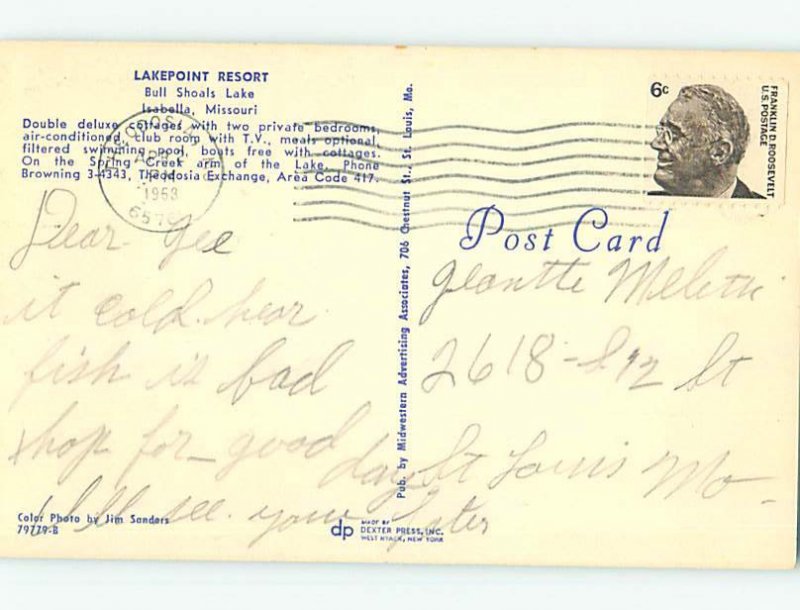 LAKEPOINT RESORT
Bull Shoals Lake
Isabella, Missouri
Double deluxe cottages with two private bedrooms,
air-conditioned, club room with T.V., meals optional,
filtered swimming pool, boats free with cottages.
On the Spring Creek arm of the Lake. Phone
Browning 3-4343, Theodosia Exchange, Area Code 417.
APR
PM
Dear Gee
it cold hear
fish is bad
hop for good
day
I'll see you later
Color Photo by Jim Sanders
79779-B
Pub. by Midwestern Advertising Associates, 706 Chestnut St., St. Louis, Mo.
dp
MADE BY
DEXTER PRESS, INC.
WEST NYACK, NEW YORK
6c
FRANKLIN D. ROOSEVELT
U.S. POSTAGE
Post Card
Geantte Meletti
2618 - St
St Louis Mo-